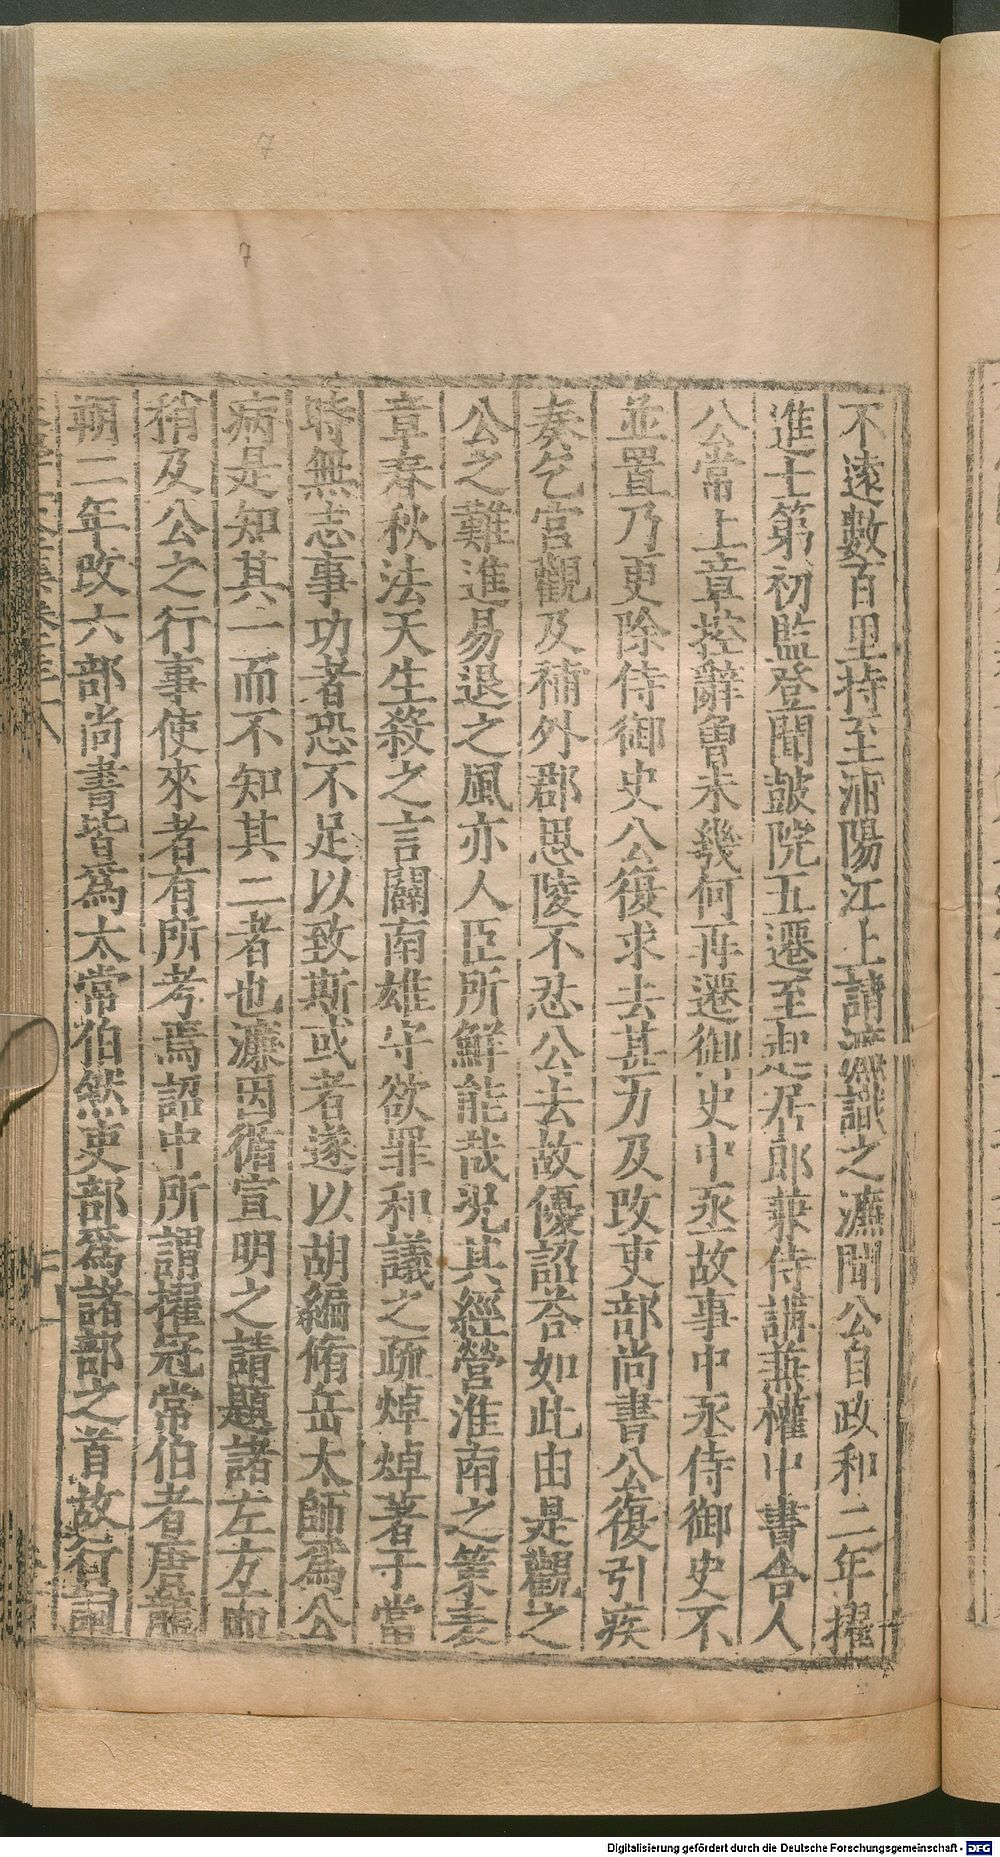 不遠數百里持至浦陽江上請濂識之濂聞公自政和二年擢
進士第初監登聞鼓院五遷至起居郎兼侍講兼權中書舍人
公常上章控辭曾未幾何再遷御史中丞故事中丞侍御史不
並置乃更除侍御史公復求去甚力及改吏部尚書公復引疾
奏乞宮觀及補外郡思陵不忍公去故優詔荅如此由是觀之
公之難進易退之風亦人臣所鮮能哉況其經營淮南之策表
章春秋法天生殺之言闢南雄守欲罪和議之疏焯焯著于當
時無志事功者恐不足以致斯或者遂以胡編脩岳太師為公
病是知其一而不知其二者也濂因循宣明之請題諸左方而
稍及公之行事使來者有所考焉詔中所謂擢冠常伯者唐龍
朔二年改六部尚書皆為太常伯然吏部為諸部之首故行詞
7
7
Digitalisierung gefördert durch die Deutsche Forschungsgemeinschaft - DFG